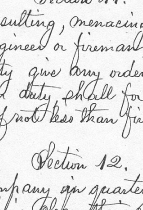 Section 11.
sulting, menacing
gineer or fireman
ty give any order
d duty, shall for
f not less than fi
Section 12.
mpany in quarter